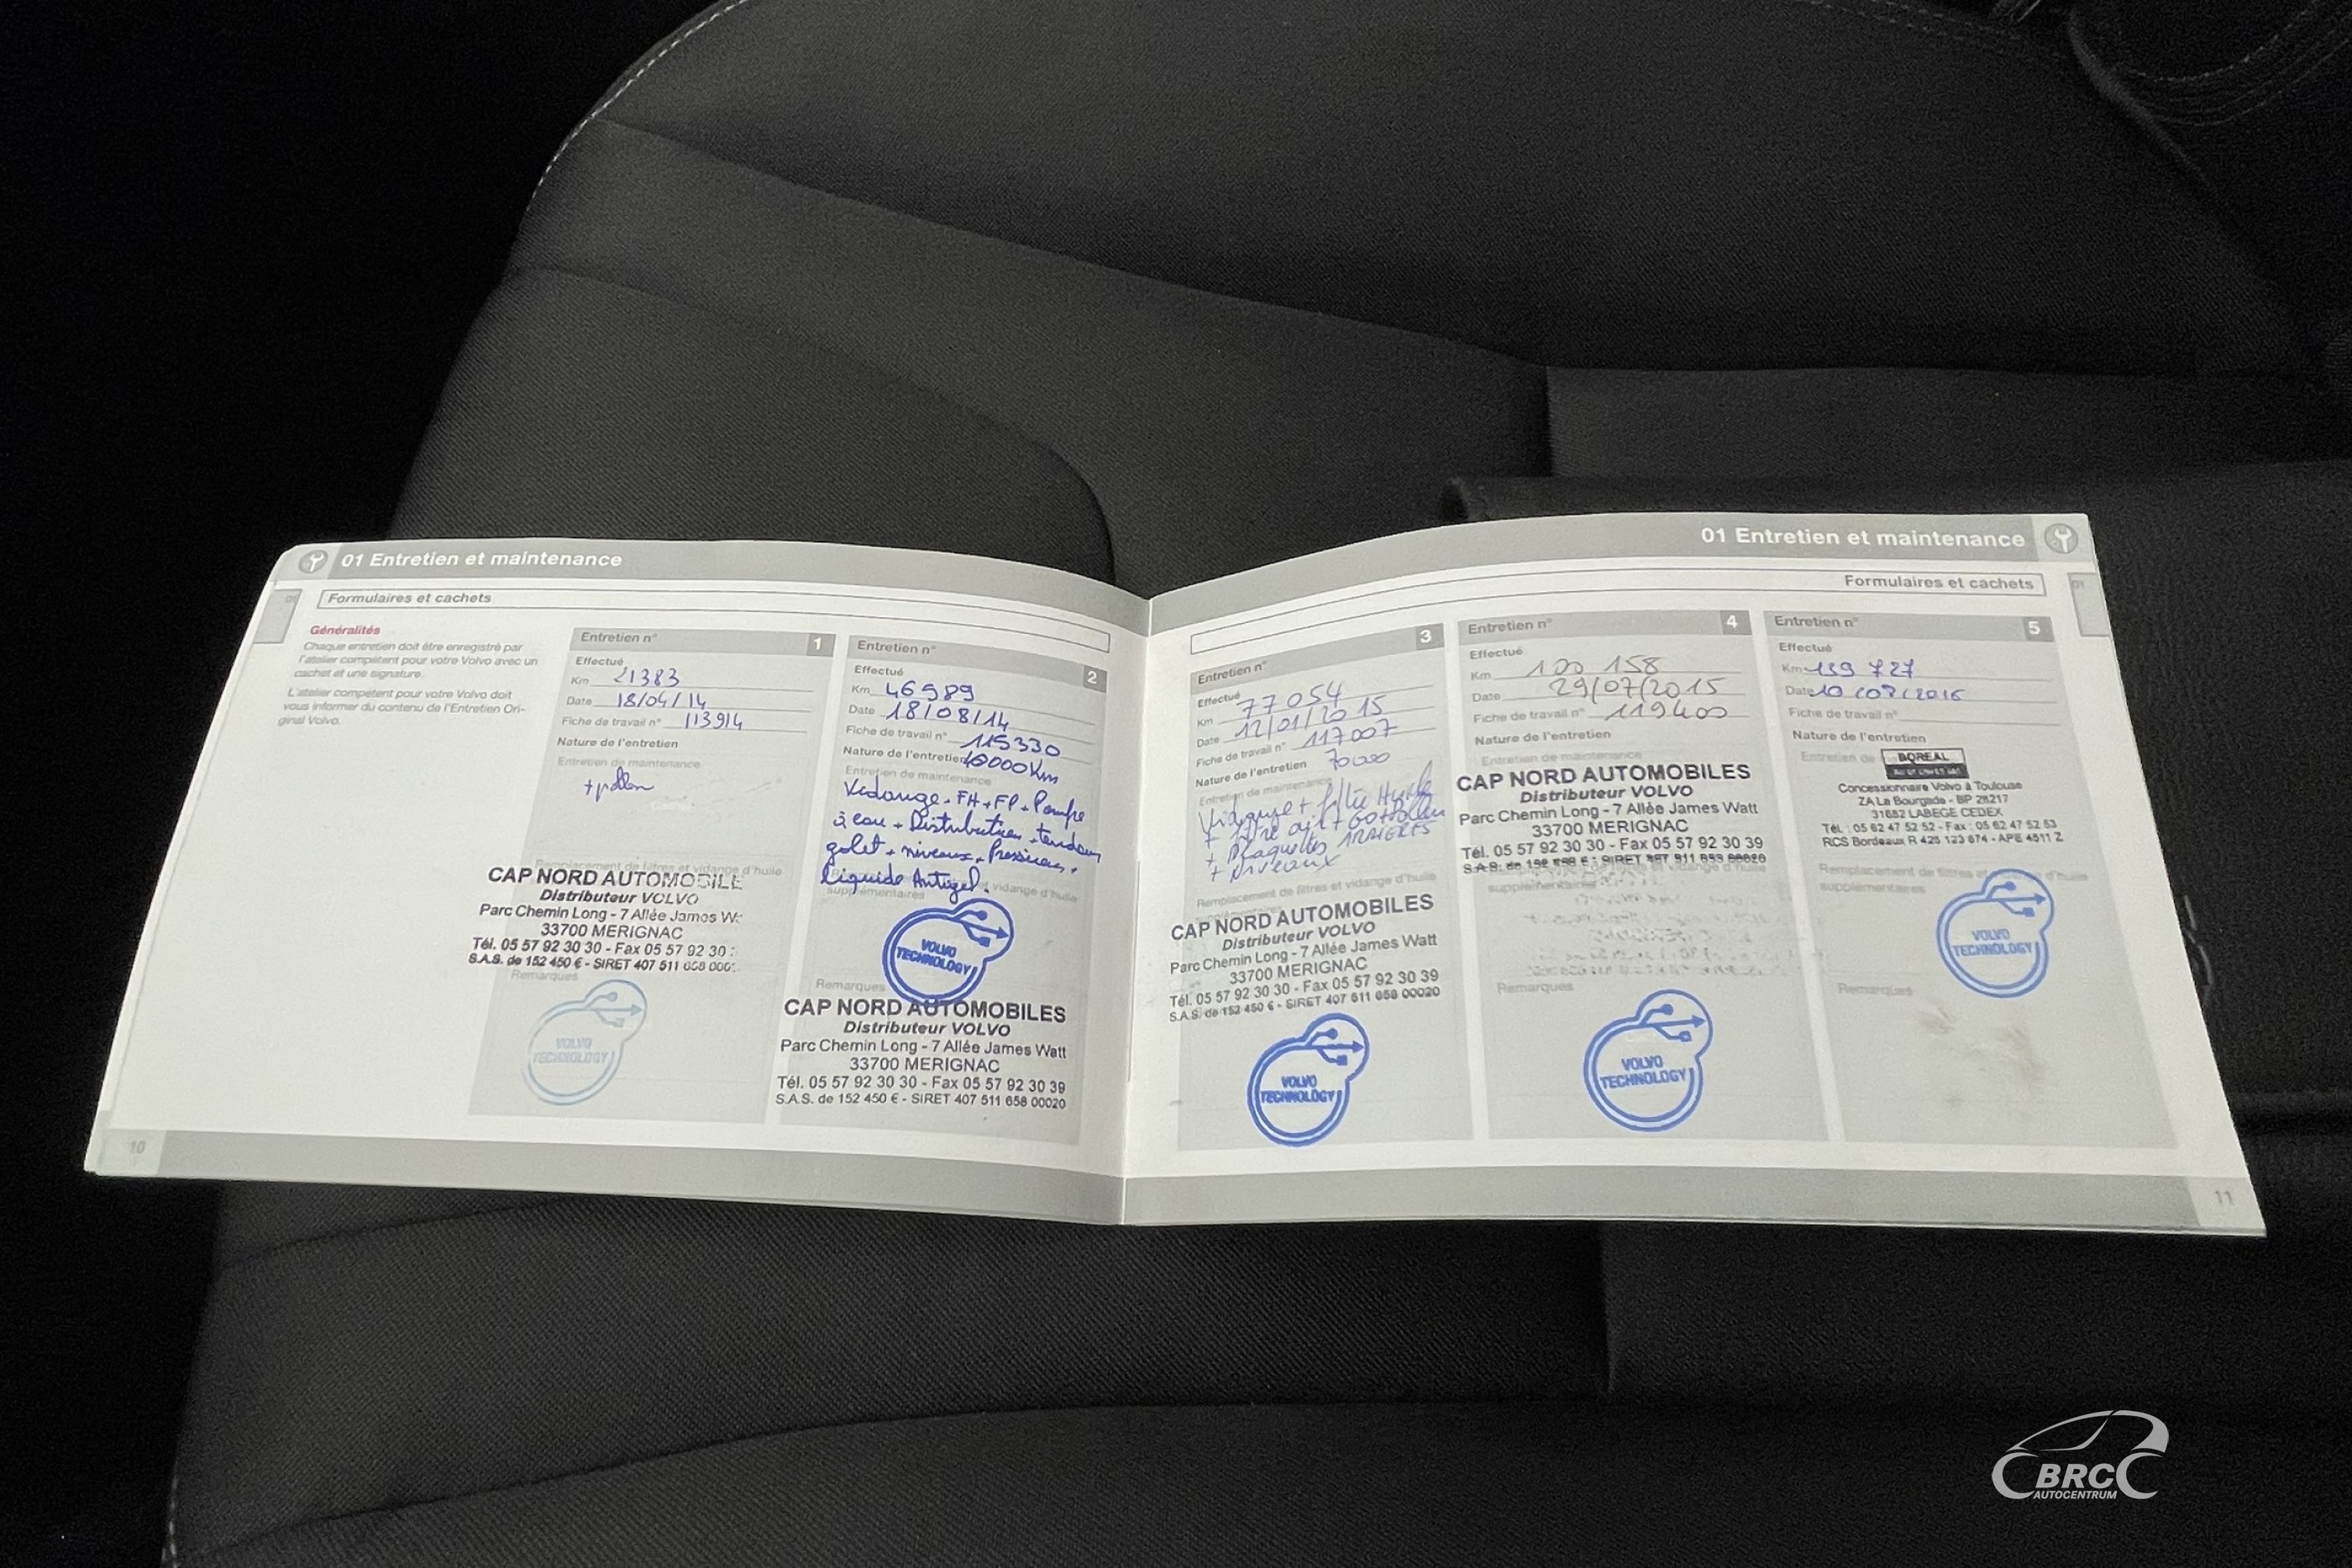 01 Entretien et maintenance
Formulaires et cachets
Généralités
Chaque entretien doit être enregistré par
l'atelier compétent pour votre Volvo avec un
cachet et une signature.
L'atelier compétent pour votre Volvo doit
vous informer du contenu de l'Entretien Ori-
ginal Volvo.
Entretien n° 1
Effectué
Km 21383
Date 18/04/14
Fiche de travail n° 113914
Nature de l'entretien
Entretien de maintenance
+ pollen
Remplacement de filtres et vidange d'huile
CAP NORD AUTOMOBILE
Distributeur VOLVO
Parc Chemin Long - 7 Allée James W
33700 MERIGNAC
Tél. 05 57 92 30 30 - Fax 05 57 92 30
S.A.S. de 152 450 € - SIRET 407 511 658 000
Remarques
VOLVO
TECHNOLOGY
10
Entretien n° 2
Effectué
Km 46989
Date 18/08/14
Fiche de travail n° 115330
Nature de l'entretien 40000 Km
Entretien de maintenance
Vidange + FH + FP + Pompe
à eau + Distribution + tendeur
galet + niveaux + Pressions +
Liquide Antigel.
et vidange d'huile
supplémentaires
VOLVO
TECHNOLOGY
Remarques
CAP NORD AUTOMOBILES
Distributeur VOLVO
Parc Chemin Long - 7 Allée James Watt
33700 MERIGNAC
Tél. 05 57 92 30 30 - Fax 05 57 92 30 39
S.A.S. de 152 450 € - SIRET 407 511 658 00020
01 Entretien et maintenance
Formulaires et cachets
01
Entretien n° 3
Effectué
Km 77054
Date 12/01/2015
Fiche de travail n° 117007
Nature de l'entretien 70000
Entretien de maintenance
Vidange + filtre Huile
+ filtre air + Pollen
+ Plaquettes ARRIERES
+ Niveaux
Remplacement de filtres et vidange d'huile
CAP NORD AUTOMOBILES
Distributeur VOLVO
Parc Chemin Long - 7 Allée James Watt
33700 MERIGNAC
Tél. 05 57 92 30 30 - Fax 05 57 92 30 39
S.A.S. de 152 450 € - SIRET 407 511 658 00020
VOLVO
TECHNOLOGY
Entretien n° 4
Effectué
Km 100 158
Date 29/07/2015
Fiche de travail n° 119400
Nature de l'entretien
Entretien de maintenance
CAP NORD AUTOMOBILES
Distributeur VOLVO
Parc Chemin Long - 7 Allée James Watt
33700 MERIGNAC
Tél. 05 57 92 30 30 - Fax 05 57 92 30 39
supplémentaires
Remarques
VOLVO
TECHNOLOGY
Entretien n° 5
Effectué
Km 139 727
Date 10/08/2016
Fiche de travail n°
Nature de l'entretien
Entretien de
BOREAL
Concessionnaire Volvo à Toulouse
ZA La Bourgade - BP 28217
31682 LABEGE CEDEX
Tél. : 05 62 47 52 52 - Fax : 05 62 47 52 53
RCS Bordeaux R 425 123 674 - APE 4511 Z
Remplacement de filtres et vidange d'huile
supplémentaires
VOLVO
TECHNOLOGY
Remarques
11
BRC
AUTOCENTRUM